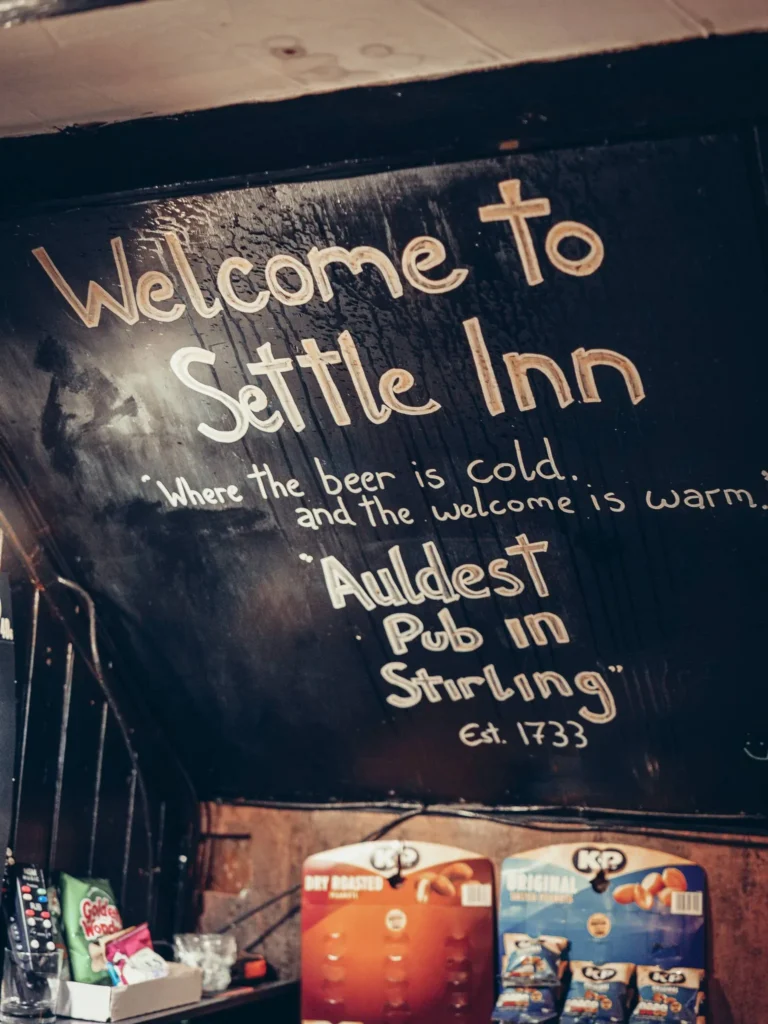 Welcome to
Settle Inn
"Where the beer is cold.
and the welcome is warm."
"Auldest
Pub in
Stirling"
Est. 1733
KP
DRY ROASTED
PEANUTS
KP
ORIGINAL
SALTED PEANUTS
Golden
Wonder
KP
KP
KP